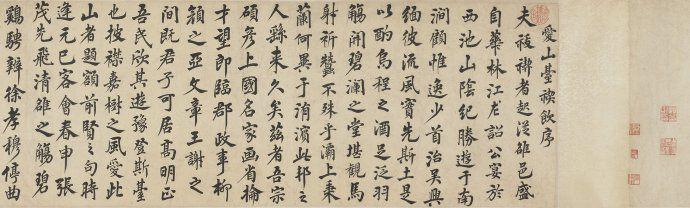 愛山臺禊飲序
夫祓禊者起從雒邑盛
自華林江左詔公宴於
西池山陰紀勝遊于南
澗顧惟逸少首治吳興
緬彼流風實先斯土是
以酌烏程之酒足泛羽
觴開碧瀾之堂堪觀馬
射祈蠶不殊乎灞上秉
蘭何異于洧濱此邦之
人繇來久矣茲者吾宗
碩彥上國名家画省掄
才望郎臨郡政事柳
之亞文章王謝之
間既君子可居高明正
吾民欣其遊豫登斯臺
也披襟嘉樹之風愛此
山者題額前賢之句時
逢元巳客會春申張
茂先飛清雒之觴碧
鷄騁辯徐孝穆停曲